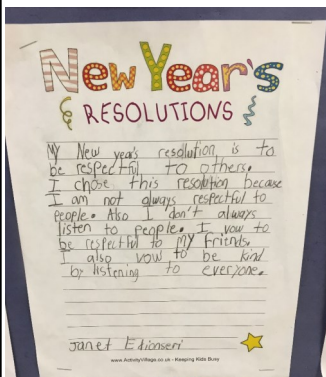 New Year's
RESOLUTIONS
My New year's resolution is to
be respectful to others.
I chose this resolution because
I am not always respectful to
people. Also I don't always
listen to people. I vow to
be respectful to my friends.
I also vow to be kind
by listening to everyone.
Janet Edionseri
www.ActivityVillage.co.uk - Keeping Kids Busy